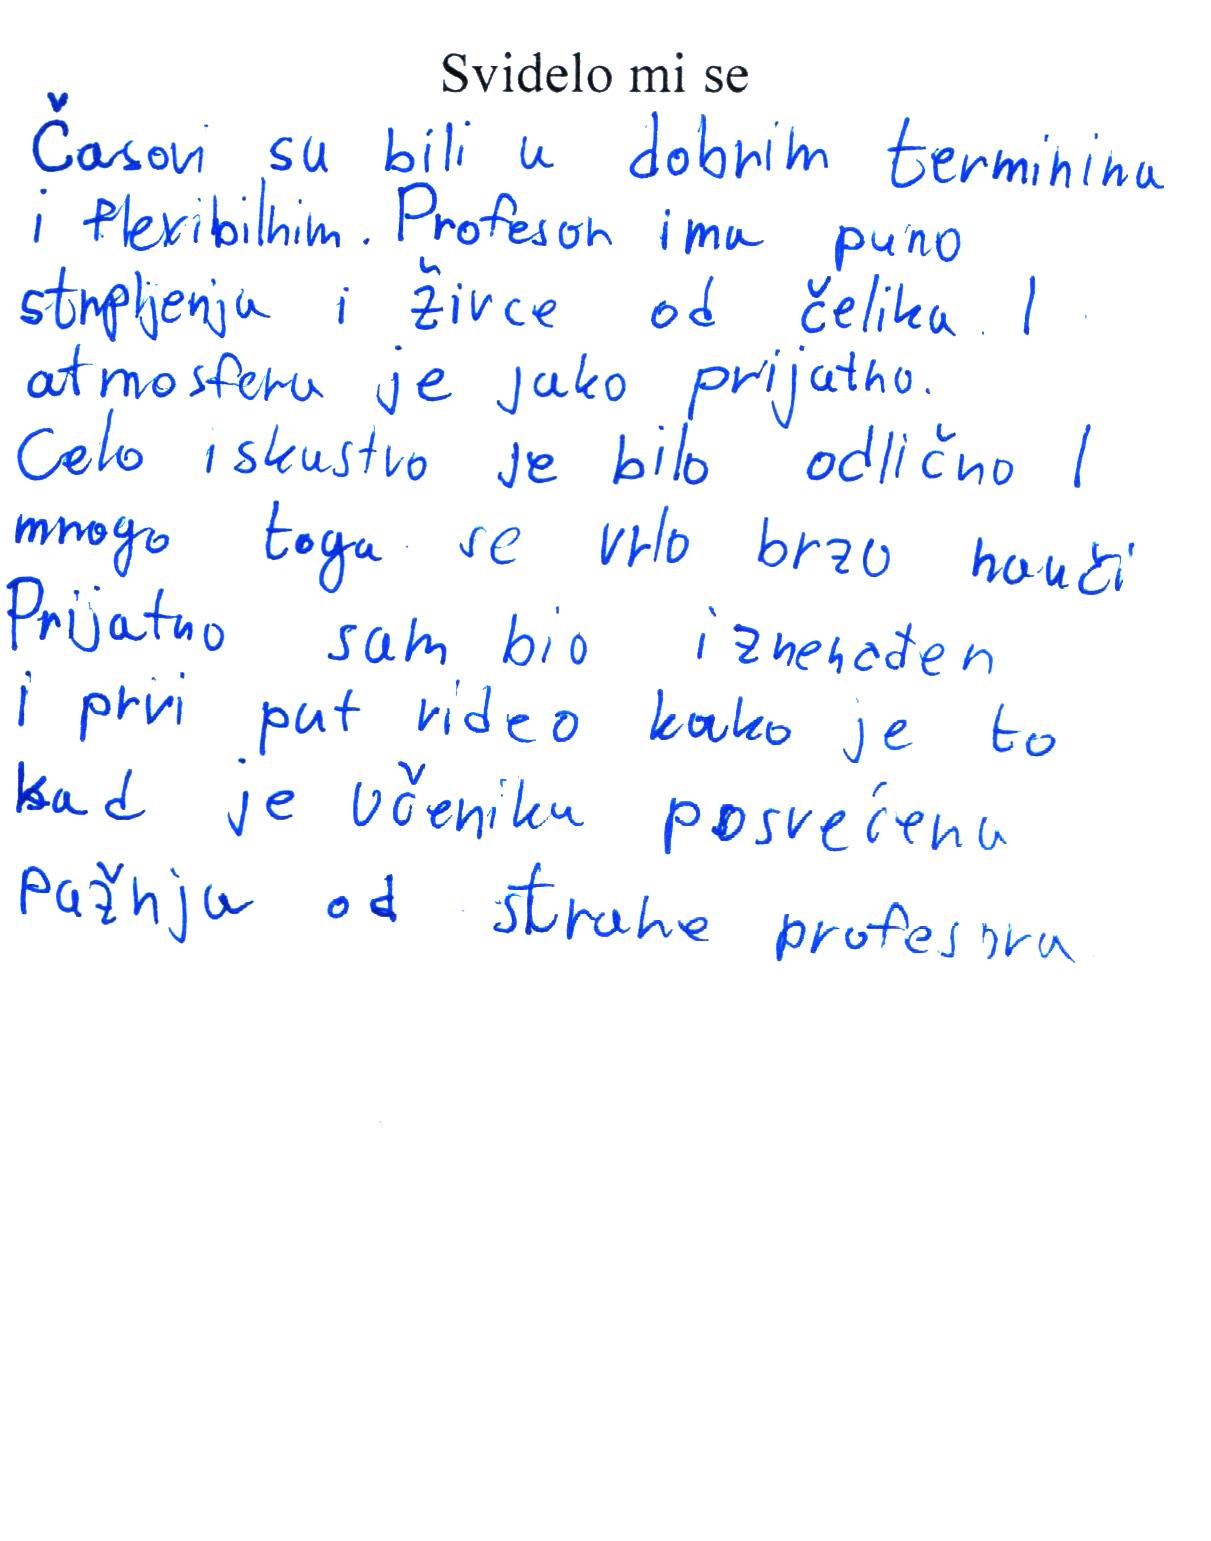 Svidelo mi se
Časovi su bili u dobrim terminina
i flexibilnim. Profesor ima puno
strpljenja i živce od čelika. I
atmosfera je jako prijatno.
Celo iskustvo je bilo odlično I
mnogo toga se vrlo brzo nauči
Prijatno sam bio iznenađen
i prvi put video kako je to
kad je učeniku posvećena
pažnja od strane profesora